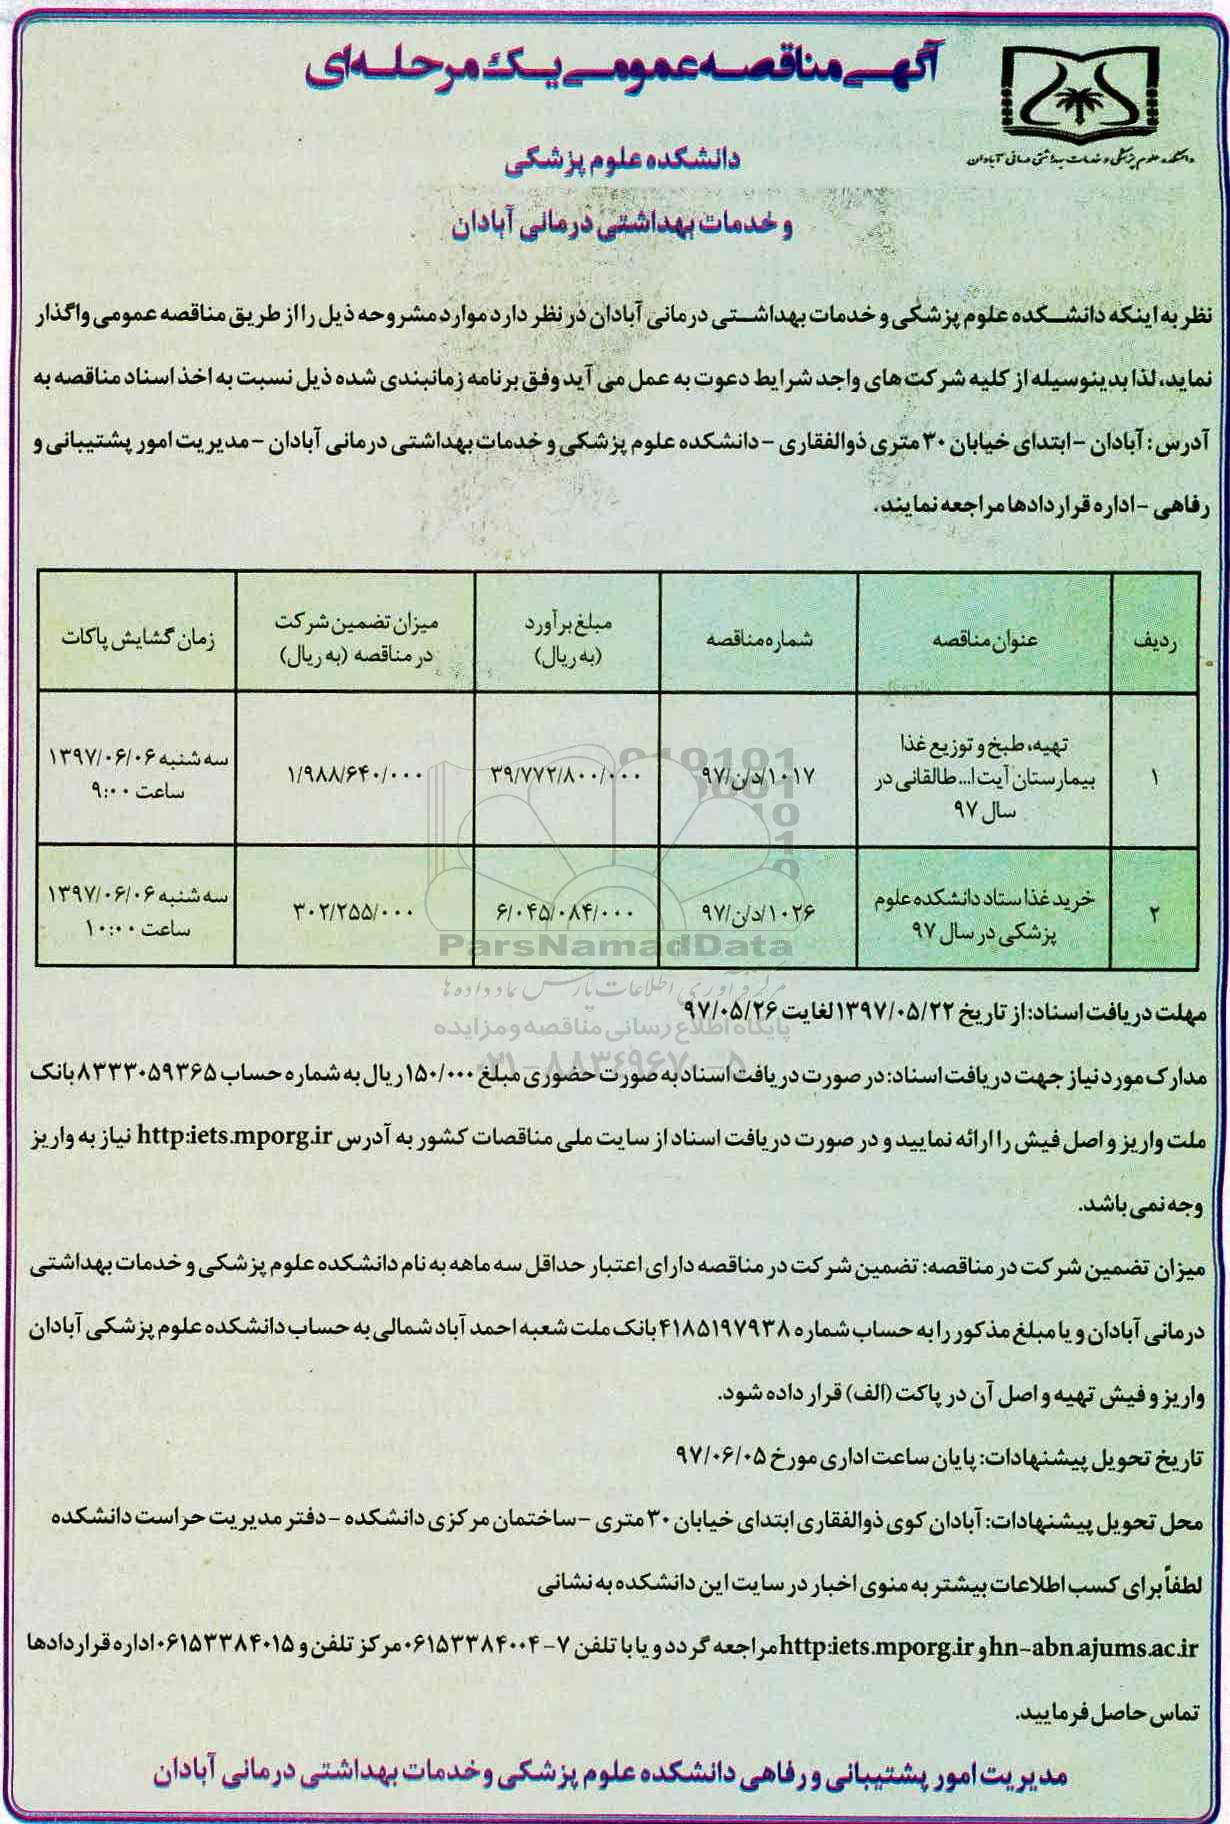 آگهی مناقصه عمومی یک مرحله‌ای
دانشکده علوم پزشکی و خدمات بهداشتی درمانی آبادان
دانشکده علوم پزشکی
و خدمات بهداشتی درمانی آبادان
نظر به اینکه دانشکده علوم پزشکی و خدمات بهداشتی درمانی آبادان در نظر دارد موارد مشروحه ذیل را از طریق مناقصه عمومی واگذار
نماید، لذا بدینوسیله از کلیه شرکت‌های واجد شرایط دعوت به عمل می آید وفق برنامه زمانبندی شده ذیل نسبت به اخذ اسناد مناقصه به
آدرس: آبادان - ابتدای خیابان ۳۰ متری ذوالفقاری - دانشکده علوم پزشکی و خدمات بهداشتی درمانی آبادان - مدیریت امور پشتیبانی و
رفاهی - اداره قراردادها مراجعه نمایند.
ردیف | عنوان مناقصه | شماره مناقصه | مبلغ برآورد (به ریال) | میزان تضمین شرکت در مناقصه (به ریال) | زمان گشایش پاکات
۱ | تهیه، طبخ و توزیع غذا بیمارستان آیت ا... طالقانی در سال ۹۷ | ۱۰۱۷/د/ن/۹۷ | ۳۹/۷۷۲/۸۰۰/۰۰۰ | ۱/۹۸۸/۶۴۰/۰۰۰ | سه شنبه ۱۳۹۷/۰۶/۰۶ ساعت ۹:۰۰
۲ | خرید غذا ستاد دانشکده علوم پزشکی در سال ۹۷ | ۱۰۲۶/د/ن/۹۷ | ۶/۰۴۵/۰۸۴/۰۰۰ | ۳۰۲/۲۵۵/۰۰۰ | سه شنبه ۱۳۹۷/۰۶/۰۶ ساعت ۱۰:۰۰
ParsNamadData
مرکز فرآوری اطلاعات پارس نماد داده ها
پایگاه اطلاع رسانی مناقصه و مزایده
۰۲۱-۸۸۳۴۹۶۷۰-۵
مهلت دریافت اسناد: از تاریخ ۱۳۹۷/۰۵/۲۲ لغایت ۹۷/۰۵/۲۶
مدارک مورد نیاز جهت دریافت اسناد: در صورت دریافت اسناد به صورت حضوری مبلغ ۱۵۰/۰۰۰ ریال به شماره حساب ۸۳۳۳۰۵۹۳۶۵ بانک
ملت واریز و اصل فیش را ارائه نمایید و در صورت دریافت اسناد از سایت ملی مناقصات کشور به آدرس http:iets.mporg.ir نیاز به واریز
وجه نمی باشد.
میزان تضمین شرکت در مناقصه: تضمین شرکت در مناقصه دارای اعتبار حداقل سه ماهه به نام دانشکده علوم پزشکی و خدمات بهداشتی
درمانی آبادان و یا مبلغ مذکور را به حساب شماره ۴۱۸۵۱۹۷۹۳۸ بانک ملت شعبه احمد آباد شمالی به حساب دانشکده علوم پزشکی آبادان
واریز و فیش تهیه و اصل آن در پاکت (الف) قرار داده شود.
تاریخ تحویل پیشنهادات: پایان ساعت اداری مورخ ۹۷/۰۶/۰۵
محل تحویل پیشنهادات: آبادان کوی ذوالفقاری ابتدای خیابان ۳۰ متری - ساختمان مرکزی دانشکده - دفتر مدیریت حراست دانشکده
لطفاً برای کسب اطلاعات بیشتر به منوی اخبار در سایت این دانشکده به نشانی
hn-abn.ajums.ac.ir و http:iets.mporg.ir مراجعه گردد و یا با تلفن ۷-۰۶۱۵۳۳۸۴۰۰۴ مرکز تلفن و ۰۶۱۵۳۳۸۴۰۱۵ اداره قراردادها
تماس حاصل فرمایید.
مدیریت امور پشتیبانی و رفاهی دانشکده علوم پزشکی و خدمات بهداشتی درمانی آبادان